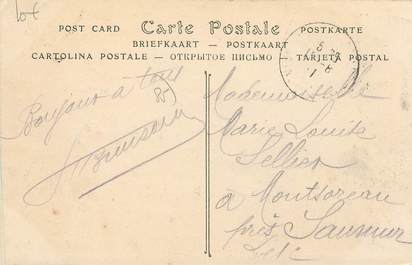 10 €
POST CARD Carte Postale POSTKARTE
BRIEFKAART — POSTKAART
CARTOLINA POSTALE — ОТКРЫТОЕ ПИСЬМО — TARJETA POSTAL
Bonjour à tous
85
Mademoiselle
Marie Louise
Sellier
à Montsoreau
près Saumur